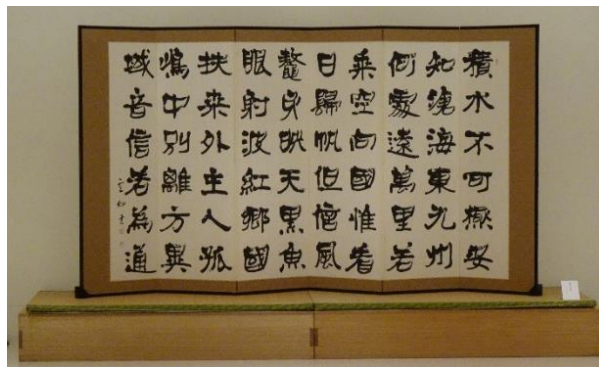 積水不可極安
知滄海東九州
何處遠萬里若
乘空向國惟看
日歸帆但信風
鼇身映天黑魚
眼射波紅鄉國
扶桑外主人孤
嶋中別離方異
域音信若為通